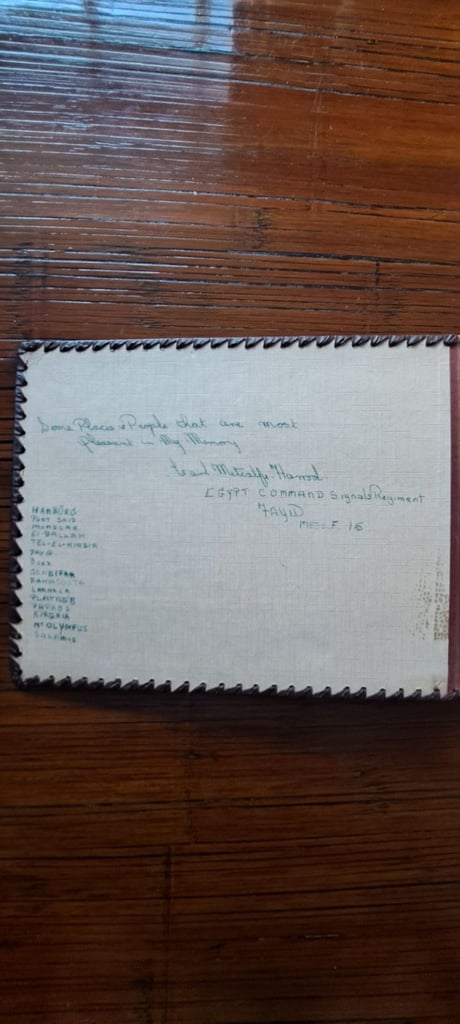 Some Places & People that are most
pleasant in My Memory
Metcalfe-Harrod.
EGYPT COMMAND Signals Regiment
FAYID
M.E.L.F. 15
HAMBURG
PORT SAID.
MOASCAR.
EL-BALLAH
TEL-EL-KIBIR
FAYID
SUEZ
GENEIFFA
FAMAGUSTA
LARNACA
PLATRES
PAPHOS
KYRENIA
MT OLYMPUS
SALAMIS